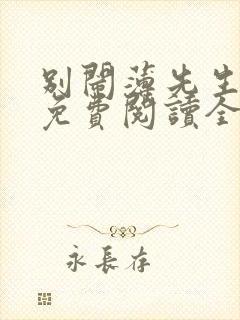 別鬧薄先生
免費閱讀全
永長存